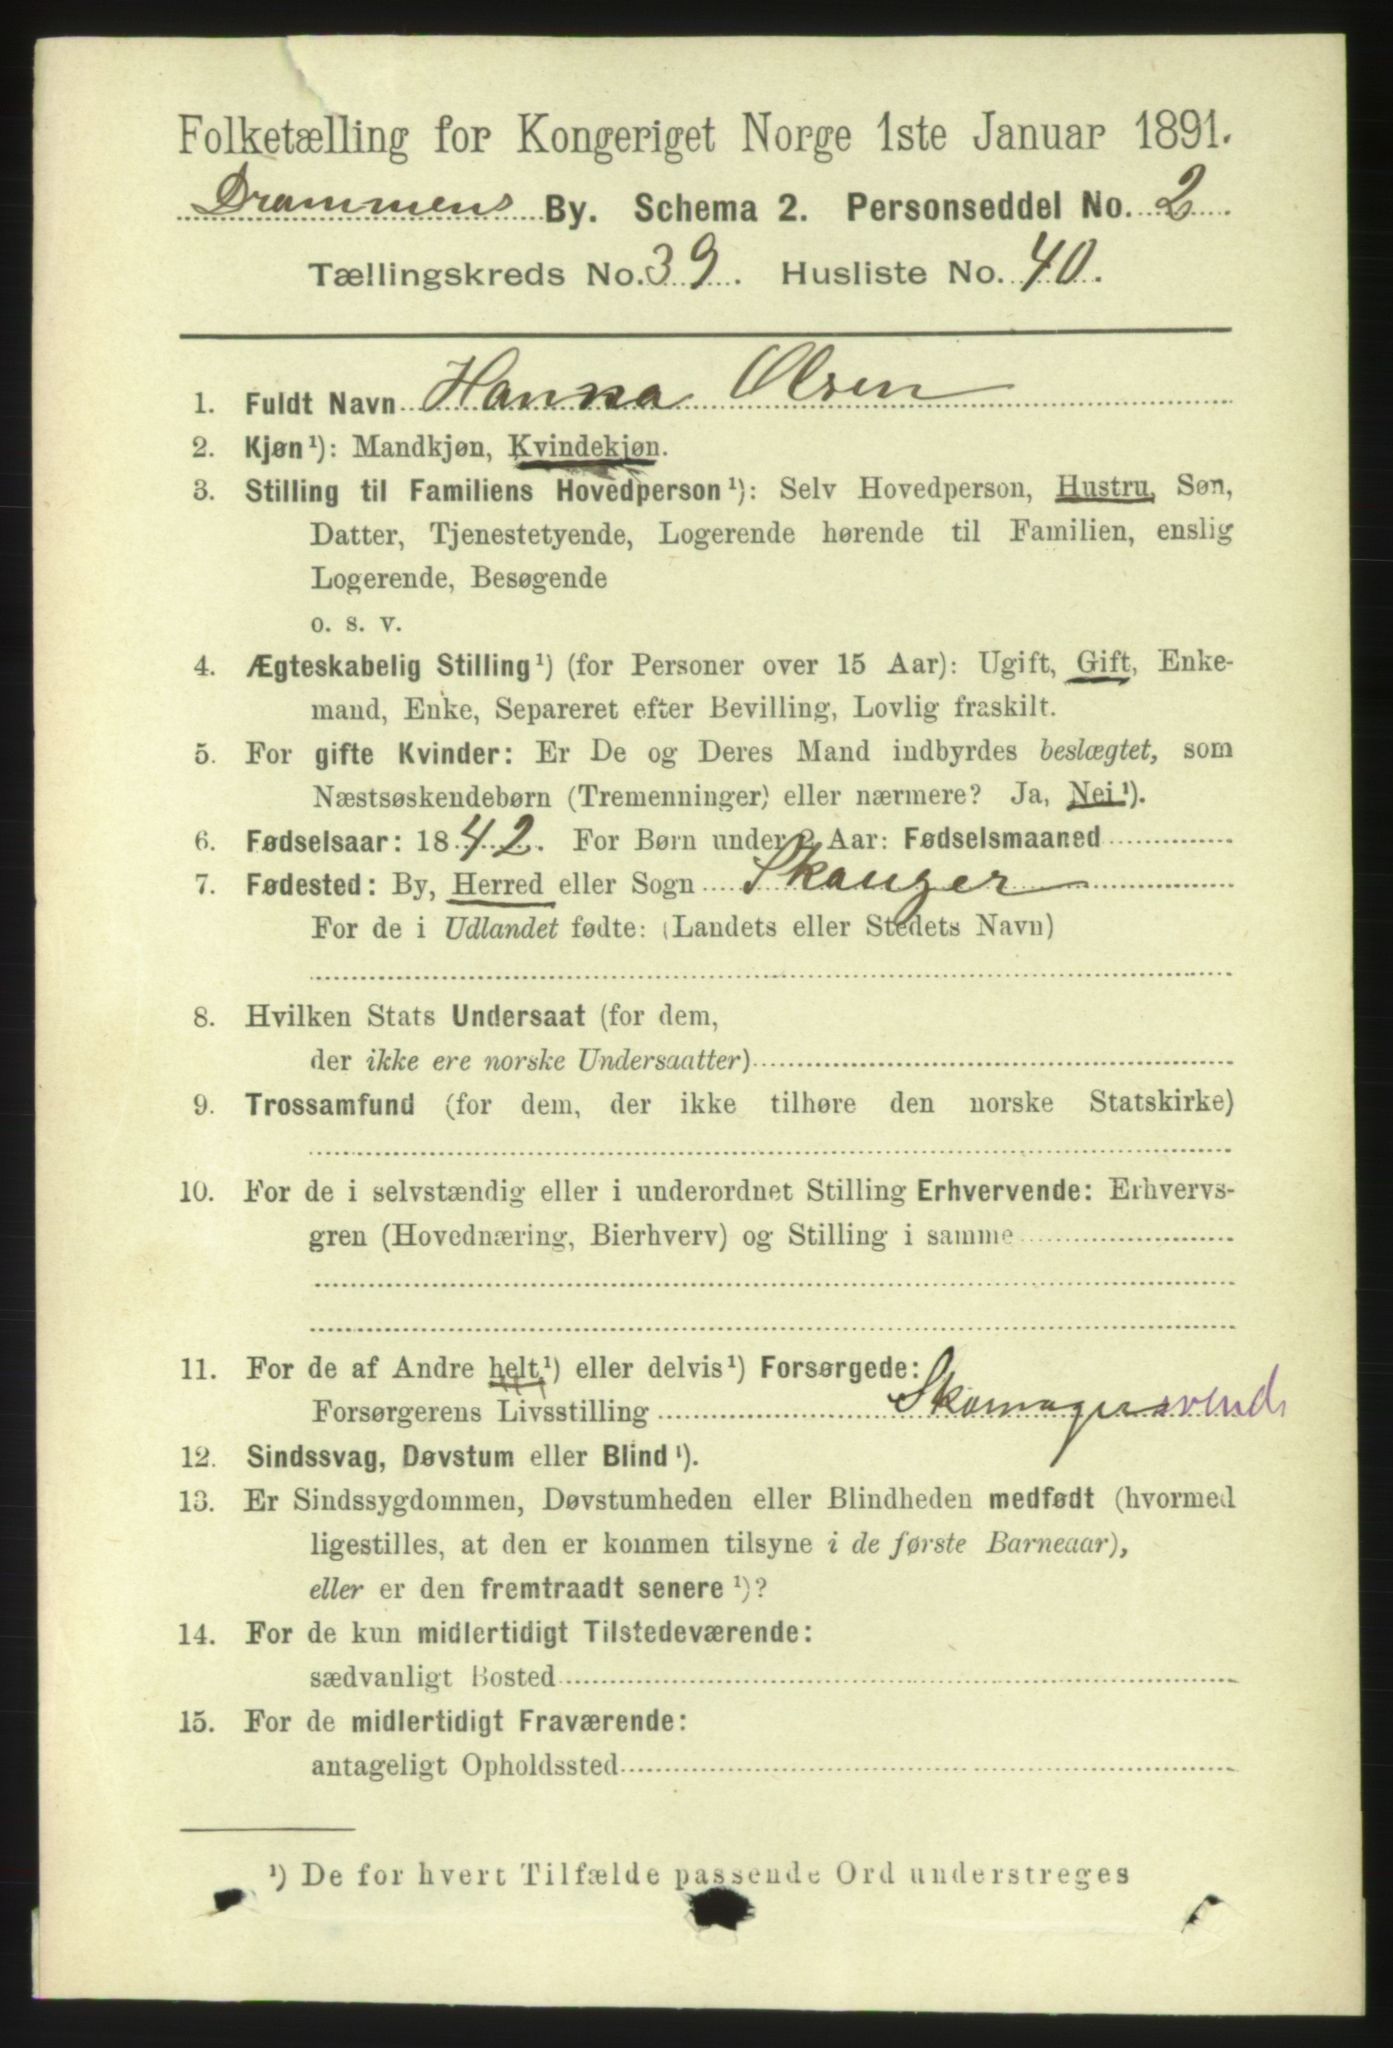 Folketælling for Kongeriget Norge 1ste Januar 1891.
Drammens By. Schema 2. Personseddel No. 2
Tællingskreds No. 39. Husliste No. 40.
1. Fuldt Navn Hanna Olsen
2. Kjøn¹): Mandkjøn, Kvindekjøn.
3. Stilling til Familiens Hovedperson¹): Selv Hovedperson, Hustru, Søn,
Datter, Tjenestetyende, Logerende hørende til Familien, enslig
Logerende, Besøgende
o. s. v.
4. Ægteskabelig Stilling¹) (for Personer over 15 Aar): Ugift, Gift, Enke-
mand, Enke, Separeret efter Bevilling, Lovlig fraskilt.
5. For gifte Kvinder: Er De og Deres Mand indbyrdes beslægtet, som
Næstsøskendebørn (Tremenninger) eller nærmere? Ja, Nei¹).
6. Fødselsaar: 1842. For Børn under 2 Aar: Fødselsmaaned
7. Fødested: By, Herred eller Sogn Skouger
For de i Udlandet fødte: (Landets eller Stedets Navn)
8. Hvilken Stats Undersaat (for dem,
der ikke ere norske Undersaatter)
9. Trossamfund (for dem, der ikke tilhøre den norske Statskirke)
10. For de i selvstændig eller i underordnet Stilling Erhvervende: Erhvervs-
gren (Hovednæring, Bierhverv) og Stilling i samme
11. For de af Andre helt¹) eller delvis¹) Forsørgede:
Forsørgerens Livsstilling Skomagersvend
12. Sindssvag, Døvstum eller Blind¹).
13. Er Sindssygdommen, Døvstumheden eller Blindheden medfødt (hvormed
ligestilles, at den er kommen tilsyne i de første Barneaar),
eller er den fremtraadt senere¹)?
14. For de kun midlertidigt Tilstedeværende:
sædvanligt Bosted
15. For de midlertidigt Fraværende:
antageligt Opholdssted
¹) De for hvert Tilfælde passende Ord understreges